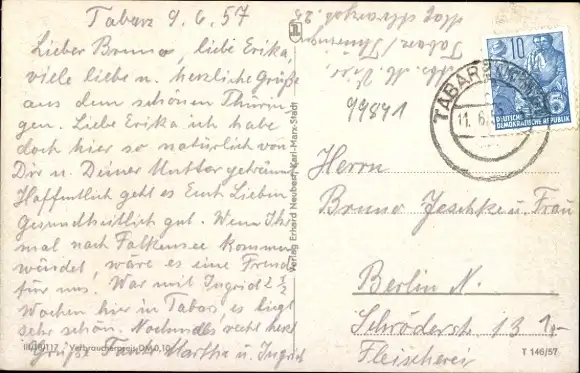 Tabarz 9.6.57
Lieber Bruno, liebe Erika,
viele liebe u. herzliche Grüße
aus dem schönen Thürin
gen. Liebe Erika ich habe
doch hier so natürlich von
Dir u. Deiner Mutter geträumt
Hoffentlich geht es Euch Lieben
Gesundheitlich gut. Wenn Ihr
mal nach Falkensee kommen
würdet, wäre es eine Freude
für uns. War mit Ingrid 2 1/2
Wochen hier in Tabarz, es liegt
sehr schön. Nochmals recht herzl
Grüße Tante Martha u. Ingrid
III/18/117 Verbraucherpreis DM 0,10
Verlag Erhard Neubert, Karl-Marx-Stadt
Abs. M.
Tabarz/Thüringen
99841
TABARZ
11.6.
10
DEUTSCHE
DEMOKRATISCHE REPUBLIK
Herrn
Bruno Jeschke u. Frau
Berlin N.
Schröderstr. 13
1,-
Fleischerei
T 146/57